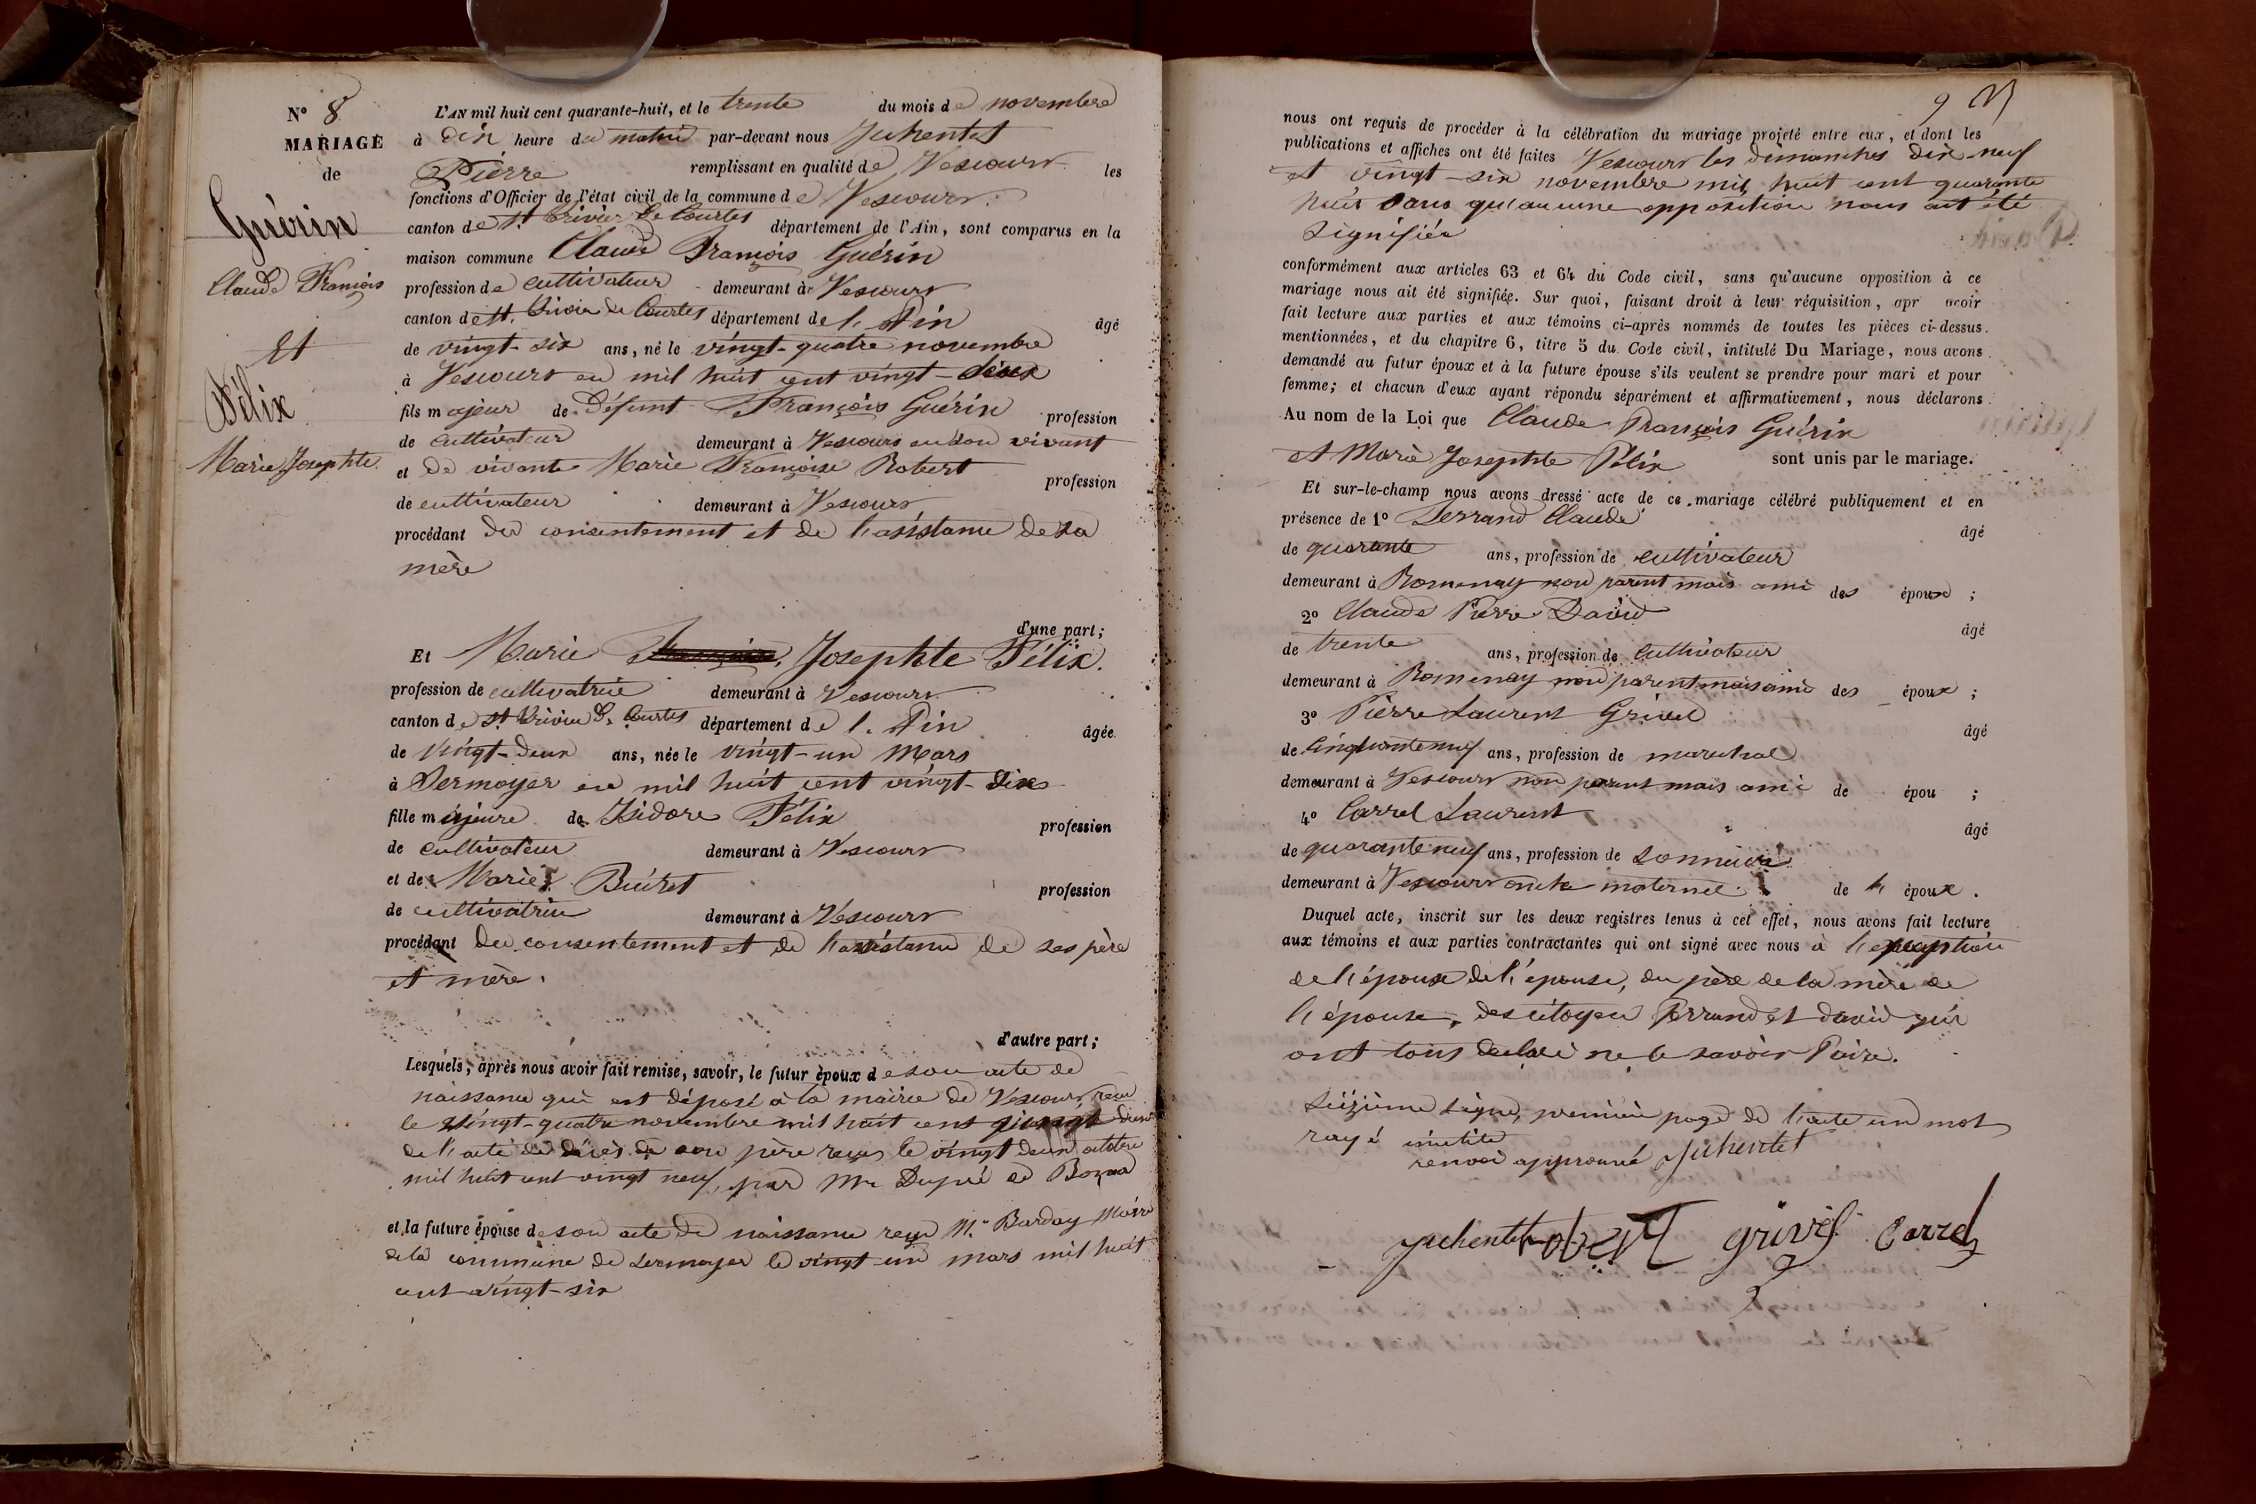 N° 8
MARIAGE
de
Guérin
Claude François
Et
Félix
Marie Josephte
L'AN mil huit cent quarante-huit, et le trente du mois de novembre
à dix heure du matin par-devant nous Juhentet
Pierre remplissant en qualité de Vescours les
fonctions d'Officier de l'état civil de la commune de Vescours
canton de St. Trivier de Courtes département de l'Ain, sont comparus en la
maison commune Claude François Guérin
profession de cultivateur demeurant à Vescours
canton de St. Trivier de Courtes département de l'Ain âgé
de vingt-six ans, né le vingt-quatre novembre
à Vescours en mil huit cent vingt-deux
fils majeur de Défunt François Guérin profession
de cultivateur demeurant à Vescours en son vivant
et de vivante Marie Françoise Robert profession
de cultivateur demeurant à Vescours
procédant du consentement et de l'assistance de sa
mère
d'une part;
Et Marie Josephte Félix.
profession de cultivatrice demeurant à Vescours
canton de St Trivier de Courtes département de l'Ain âgée
de vingt-deux ans, née le vingt-un Mars
à Sermoyer en mil huit cent vingt-six
fille majeure de Isidore Félix profession
de cultivateur demeurant à Vescours
et de Marie profession
de cultivatrice demeurant à Vescours
procédant du consentement et de l'assistance de ses père
et mère.
d'autre part;
Lesquels, après nous avoir fait remise, savoir, le futur époux de son acte de
naissance qui est déposé à la mairie de Vescours reçu
le vingt-quatre novembre mil huit cent vingt deux
de l'acte de décès de son père reçu le vingt deux octobre
mil huit cent vingt neuf, par Mr Dupré
et la future épouse de son acte de naissance reçu Mr. Barday Maire
de la commune de Sermoyer le vingt-un mars mil huit
cent vingt-six
9
nous ont requis de procéder à la célébration du mariage projeté entre eux, et dont les
publications et affiches ont été faites Vescours les dimanches dix-neuf
et vingt-six novembre mil huit cent quarante
huit sans qu'aucune opposition nous ait été
signifiée
conformément aux articles 63 et 64 du Code civil, sans qu'aucune opposition à ce
mariage nous ait été signifiée. Sur quoi, faisant droit à leur réquisition, apr avoir
fait lecture aux parties et aux témoins ci-après nommés de toutes les pièces ci-dessus
mentionnées, et du chapitre 6, titre 5 du Code civil, intitulé Du Mariage, nous avons
demandé au futur époux et à la future épouse s'ils veulent se prendre pour mari et pour
femme; et chacun d'eux ayant répondu séparément et affirmativement, nous déclarons
Au nom de la Loi que Claude François Guérin
et Marie Josephte Félix sont unis par le mariage.
Et sur-le-champ nous avons dressé acte de ce mariage célébré publiquement et en
présence de 1° Ferrand Claude âgé
de quarante ans, profession de cultivateur
demeurant à Romenay non parent mais ami des époux ;
2° Claude Pierre David âgé
de trente ans, profession de cultivateur
demeurant à Romenay non parent mais ami des époux ;
3° Pierre Laurent Grivel âgé
de cinquante neuf ans, profession de marechal
demeurant à Vescours non parent mais ami de épou ;
4° Carrel Laurent âgé
de quarante neuf ans, profession de
demeurant à Vescours oncle maternel de l' époux.
Duquel acte, inscrit sur les deux registres tenus à cet effet, nous avons fait lecture
aux témoins et aux parties contractantes qui ont signé avec nous à l'exception
de l'époux de l'épouse, du père de la mère de
l'épouse, des citoyen Ferrand et David qui
ont tous déclaré ne le savoir Faire.
Seizième ligne, première page de l'acte un mot
rayé inutile
renvoi approuvé Juhentet
Juhentet Robert Grivel Carrel